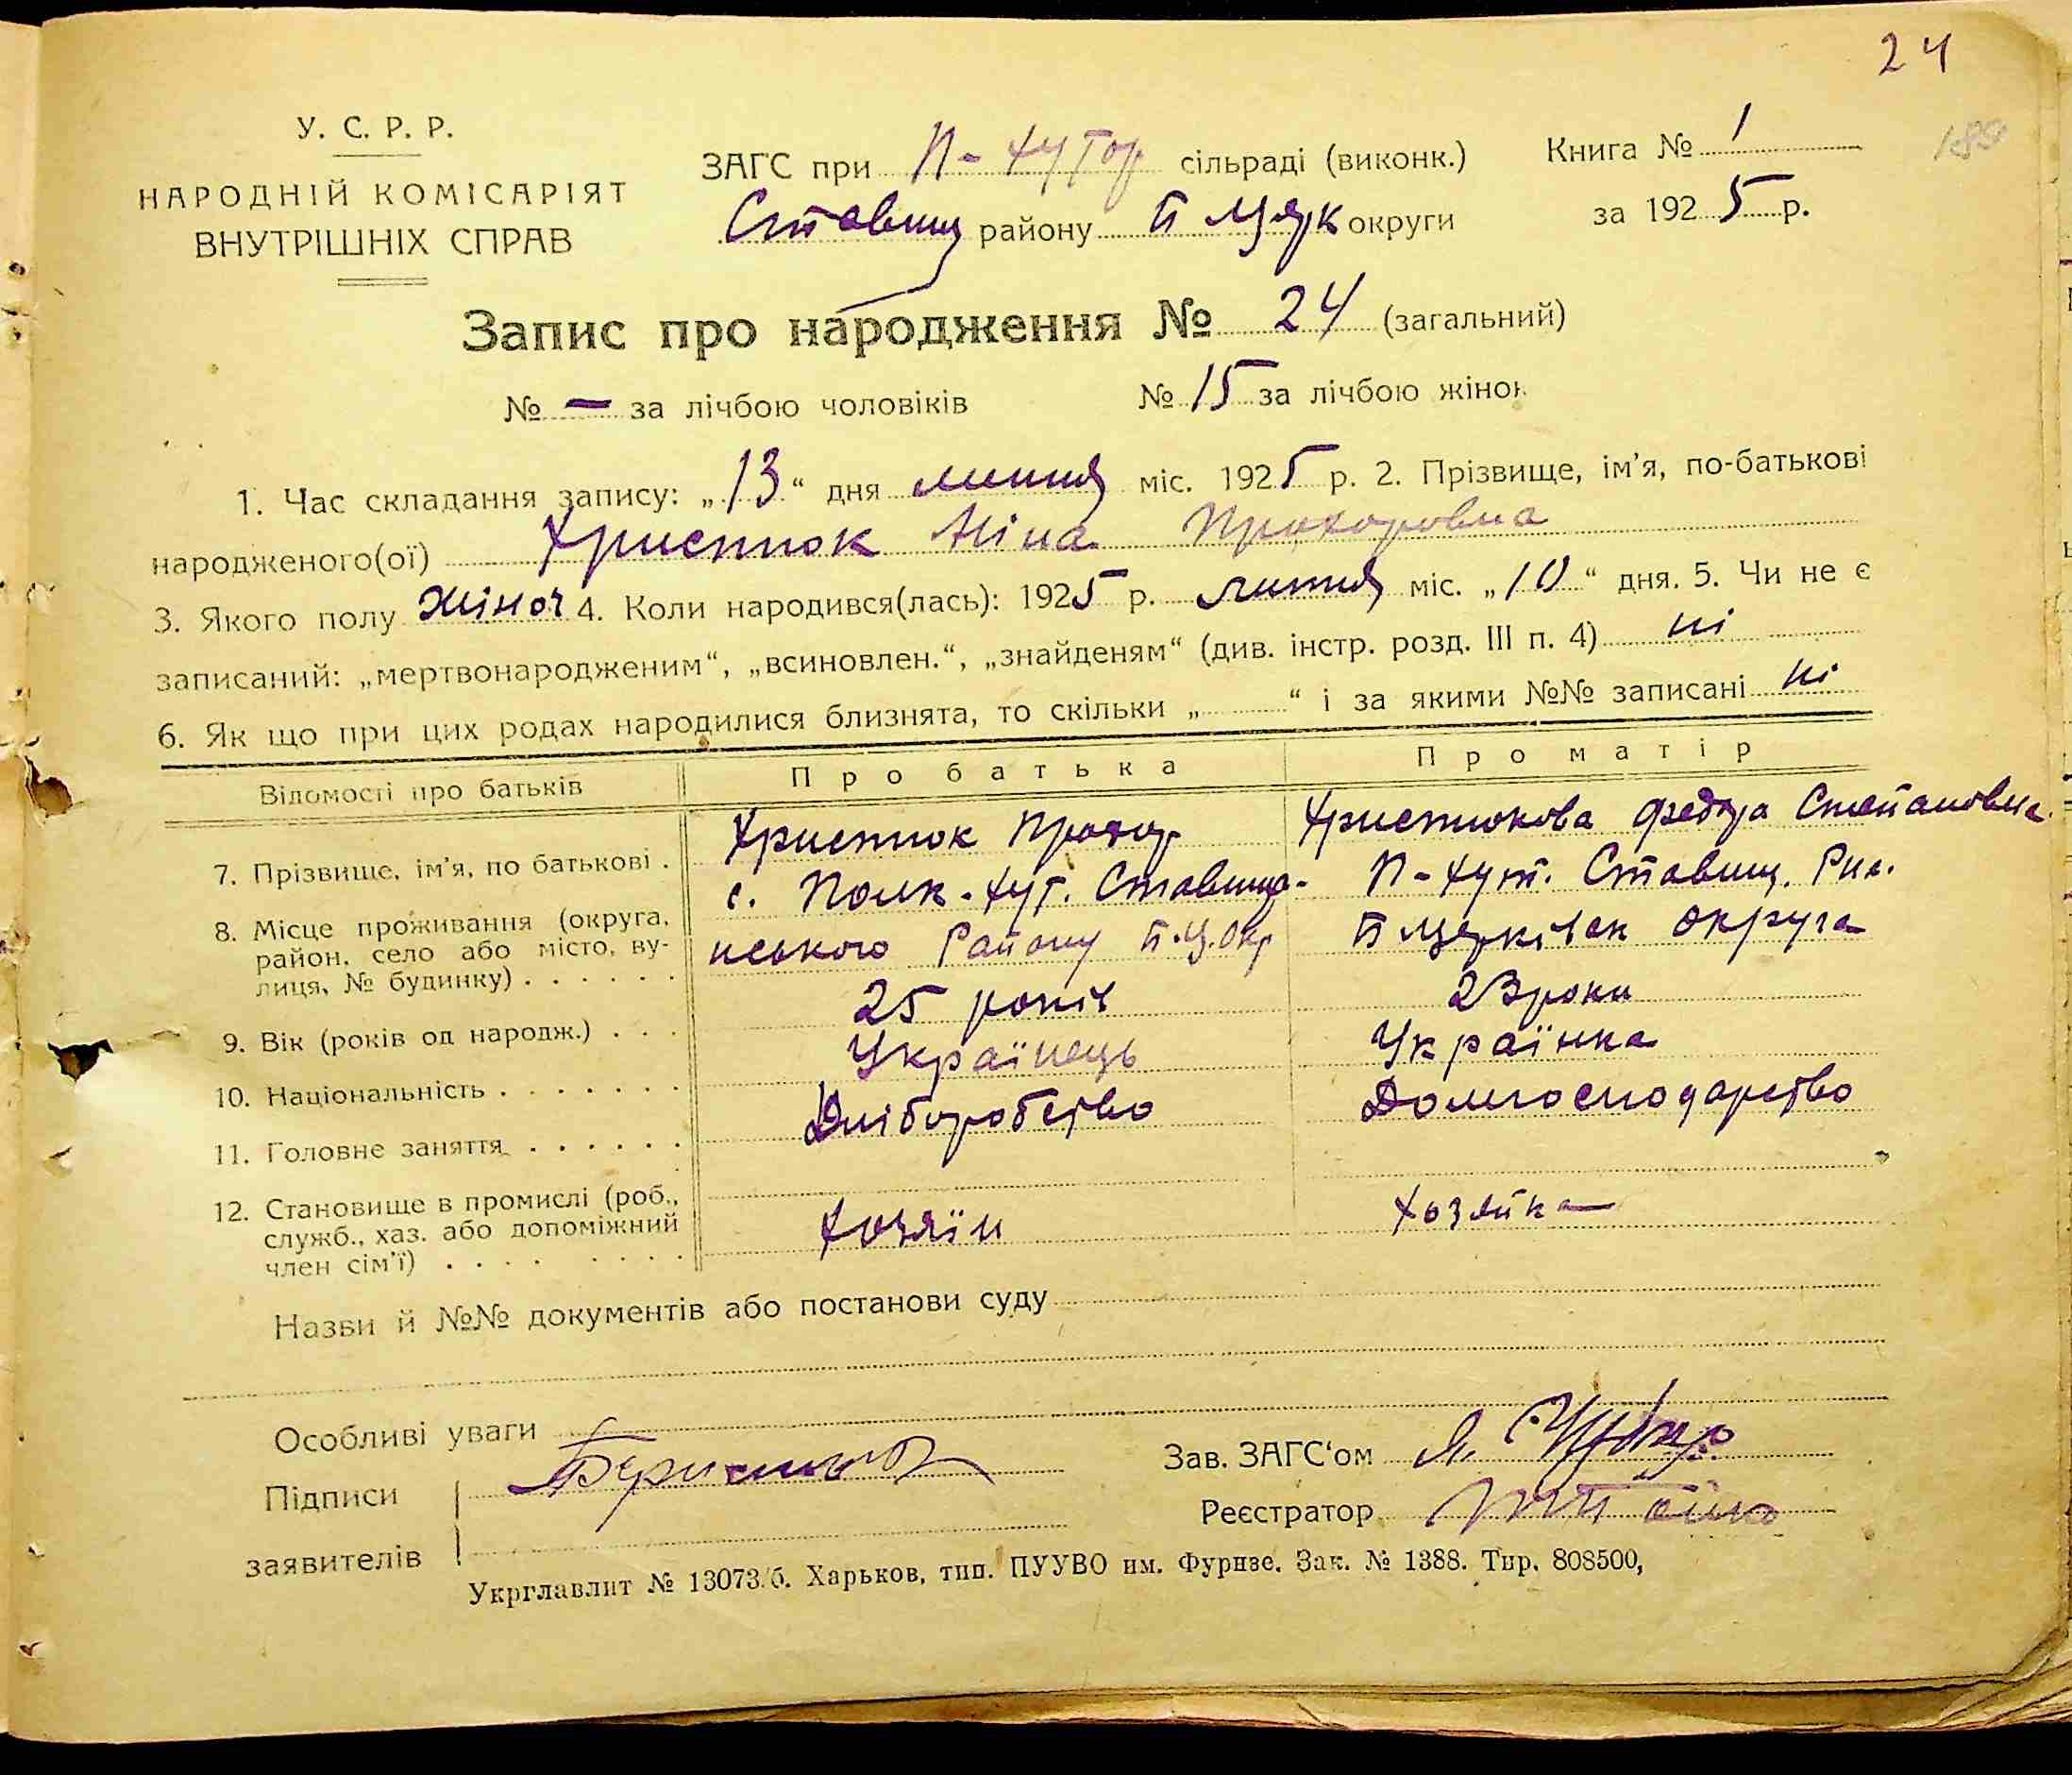 24
У. С. Р. Р.
НАРОДНІЙ КОМІСАРІЯТ
ВНУТРІШНІХ СПРАВ
ЗАГС при П-Хутор сільраді (виконк.)
Ставищ району Б Церк округи
Книга № 1
за 1925 р.
Запис про народження № 24 (загальний)
№ — за лічбою чоловіків № 15 за лічбою жінок
1. Час складання запису: „13“ дня липня міс. 1925 р. 2. Прізвище, ім’я, по-батькові
народженого(ої) Христюк Ніна Прохоровна
3. Якого полу Жіноч 4. Коли народився(лась): 1925 р. липня міс. „10“ дня. 5. Чи не є
записаний: „мертвонародженим“, „всиновлен.“, „знайденям“ (див. інстр. розд. III п. 4) ні
6. Як що при цих родах народилися близнята, то скільки „ “ і за якими №№ записані ні
Відомості про батьків Про батька Про матір
7. Прізвище, ім’я, по батькові . Христюк Прохор Христюкова Степановна
8. Місце проживання (округа, район, село або місто, ву-
лиця, № будинку) . . . . . .
с. Полк-хут. Ставище-
нського Району Б.Ц.Окр
П-хут. Ставищ. Рин.
Б Церківськ округа
9. Вік (років од народж.) . . . 25 років 23 роки
10. Національність . . . . . . . Українець Українка
11. Головне заняття . . . . . . Хліборобство Домгосподарство
12. Становище в промислі (роб.,
служб., хаз. або допоміжний
член сім’ї) . . . . . . . .
Хозяїн Хозяйка
Назви й №№ документів або постанови суду
Особливі уваги
Підписи
заявителів
Зав. ЗАГС‘ом
Реєстратор
Укрглавлит № 13073/б. Харьков, тип. ПУУВО им. Фрунзе. Зак. № 1388. Тир. 808500,